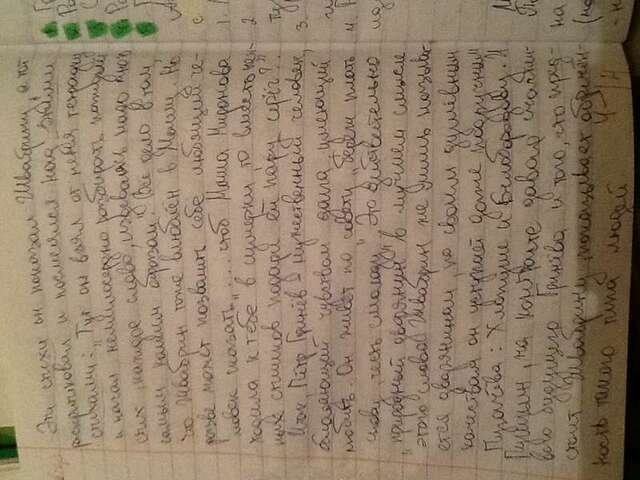 Эти стихи он показал Швабрину, а тот
раскритиковал и посмеялся над этими
стихами: „Тут он взял от меня тетрадку
и начал немилосердно разбирать каждый
стих, каждое слово, издеваясь надо мной
самым колким образом". Всё дело в том,
что Швабрин тоже влюблён в Машу. Но
разве может позволить себе любящий че-
ловек сказать „... чтоб Маша Миронова
ходила к тебе в сумерки, то вместо неж-
ных стишков подари ей пару серёг?"
Итак, Пётр Гринёв – мужественный человек,
обладающий чувством долга, умеющий
любить. Он живёт по совету „береги платье
снову, честь смолоду". Это действительно
„природный дворянин" в лучшем смысле
этого слова. Швабрин же лишь называ-
ется дворянином, по своим душевным
качествам он уступает даже подручным
Пугачёва: Хлопуше и Белобородову. И
Пушкин, на контрасте давая счастли-
вого будущего Гринёва и того, что пред-
стоит Швабрину, показывает обречён-
ность такого типа людей
Г
Ра
С
Ра
Г
с
1.
2
ту
3.
4. Р
из
на
(на
- н